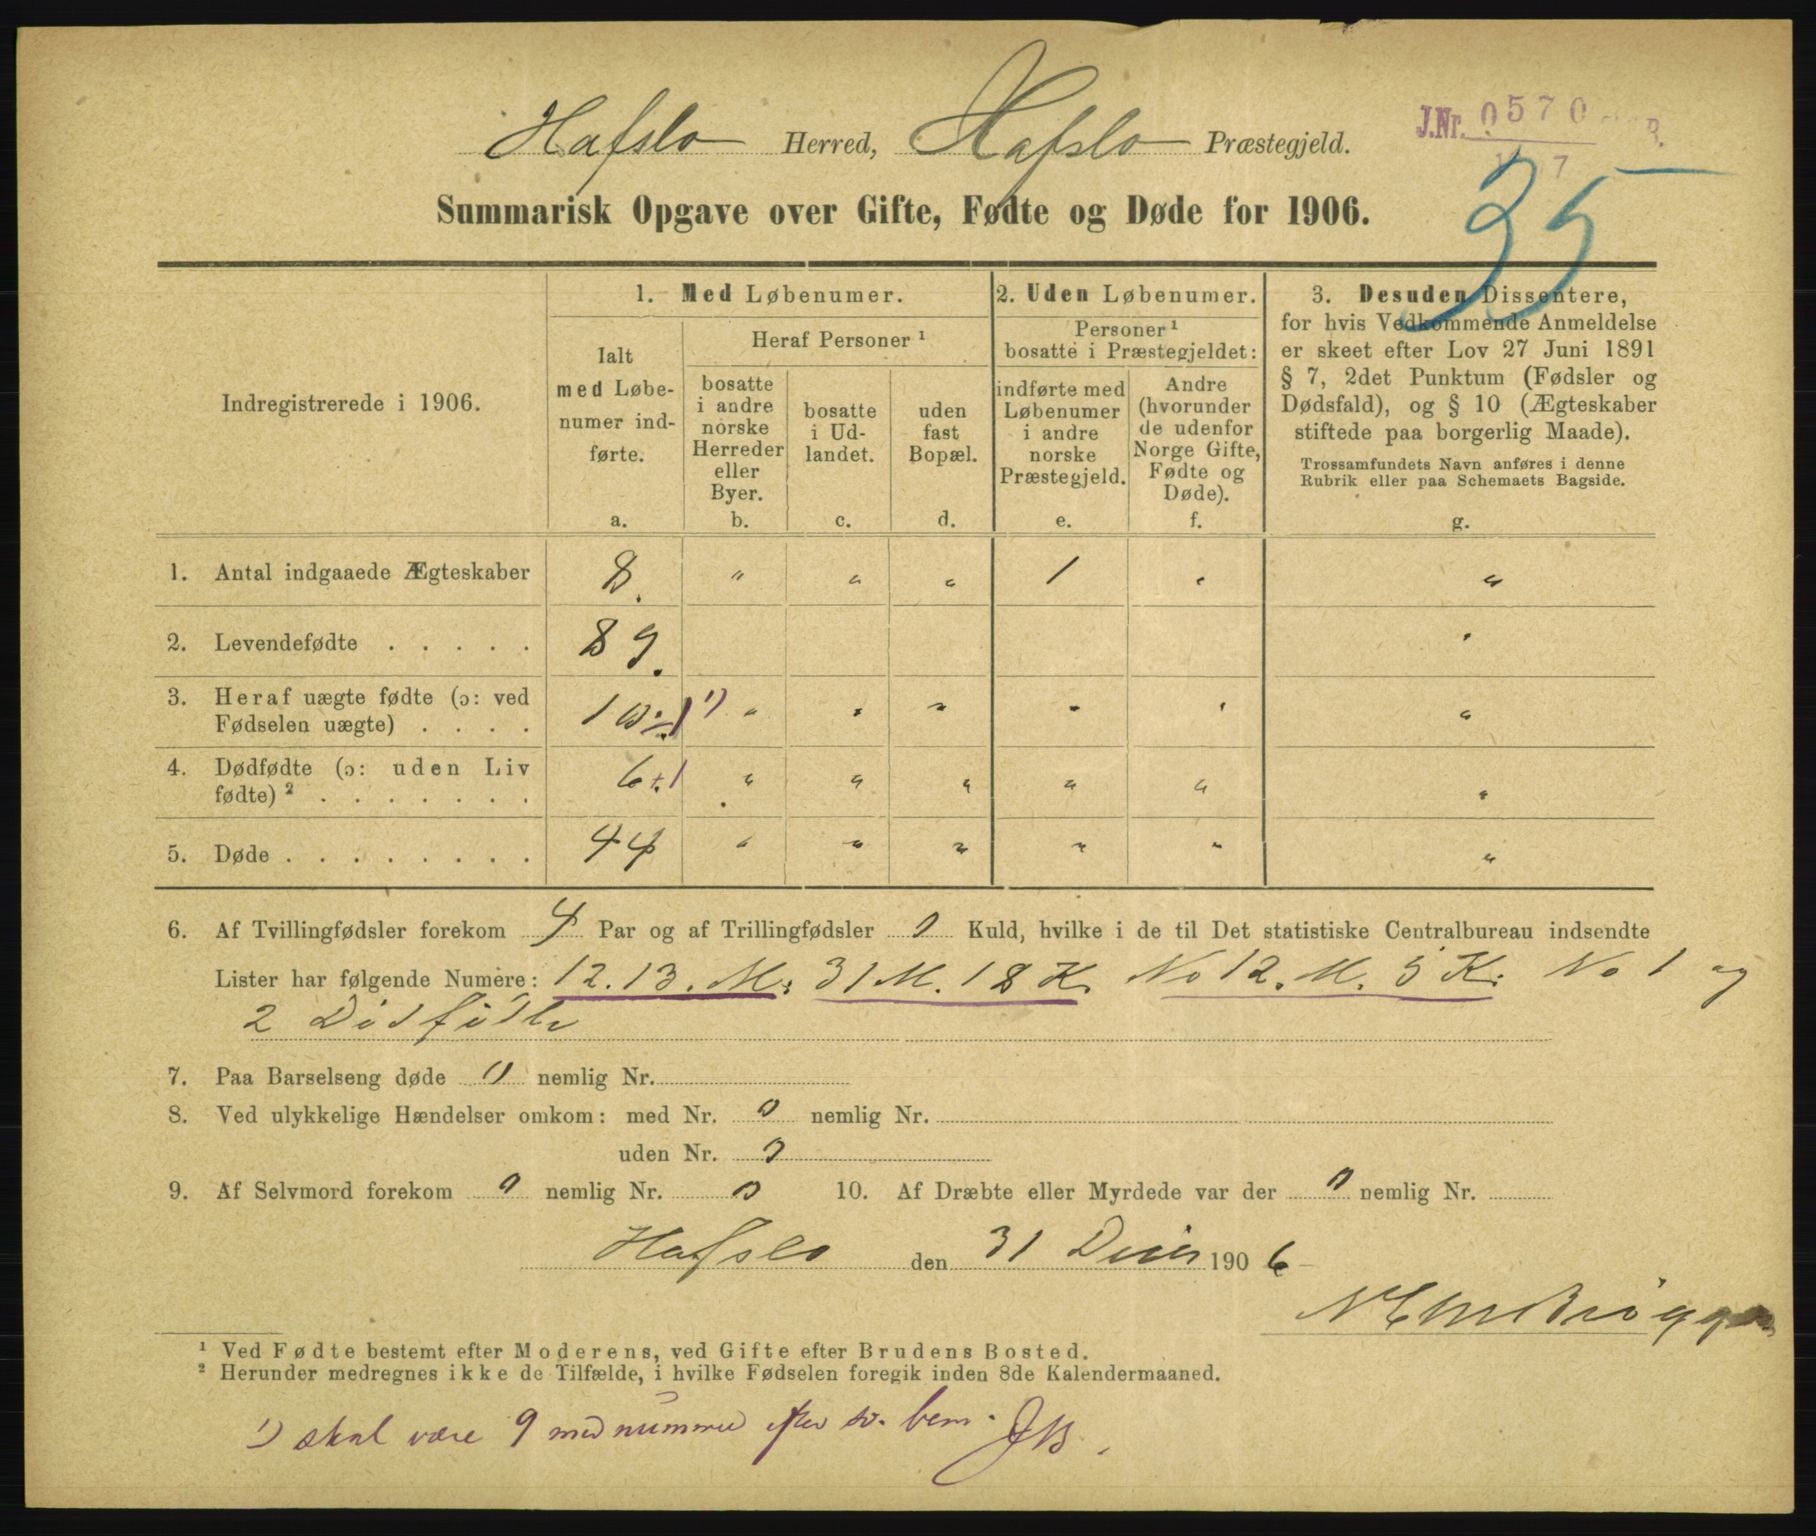 Hafslo Herred, Hafslo Præstegjeld.
J.Nr. 0570
35
Summarisk Opgave over Gifte, Fødte og Døde for 1906.
Indregistrerede i 1906.
1. Med Løbenumer.
Ialt med Løbenumer indførte.
a.
Heraf Personer ¹
bosatte i andre norske Herreder eller Byer.
b.
bosatte i Udlandet.
c.
uden fast Bopæl.
d.
2. Uden Løbenumer.
Personer ¹ bosatte i Præstegjeldet:
indførte med Løbenumer i andre norske Præstegjeld.
e.
Andre (hvorunder de udenfor Norge Gifte, Fødte og Døde).
f.
3. Desuden Dissentere,
for hvis Vedkommende Anmeldelse
er skeet efter Lov 27 Juni 1891
§ 7, 2det Punktum (Fødsler og
Dødsfald), og § 10 (Ægteskaber
stiftede paa borgerlig Maade).
Trossamfundets Navn anføres i denne
Rubrik eller paa Schemaets Bagside.
g.
1. Antal indgaaede Ægteskaber 8. " " " 1 " "
2. Levendefødte . . . . . 89. "
3. Heraf uægte fødte (ɔ: ved
Fødselen uægte) . . . . 10 ÷1 ¹) " " " " " "
4. Dødfødte (ɔ: uden Liv
fødte) ² . . . . . . . 6+1 " " " " " "
5. Døde . . . . . . . . 44 " " " " " "
6. Af Tvillingfødsler forekom 4 Par og af Trillingfødsler 0 Kuld, hvilke i de til Det statistiske Centralbureau indsendte
Lister har følgende Numere: 12. 13. M. 31 M. 18 K. No 12. M. 5 K. No 1 og
2 Dødfødte
7. Paa Barselseng døde 0 nemlig Nr.
8. Ved ulykkelige Hændelser omkom: med Nr. 0 nemlig Nr.
uden Nr. 0
9. Af Selvmord forekom 0 nemlig Nr. 0 10. Af Dræbte eller Myrdede var der 0 nemlig Nr.
Hafslo den 31 Decbr 1906
¹ Ved Fødte bestemt efter Moderens, ved Gifte efter Brudens Bosted.
² Herunder medregnes ikke de Tilfælde, i hvilke Fødselen foregik inden 8de Kalendermaaned.
¹) skal være 9 med nummer efter bem.